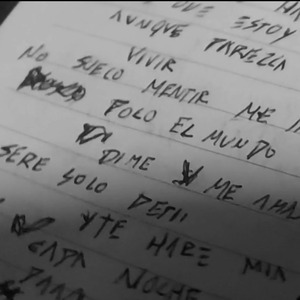 QUE ESTOY
AUNQUE PAREZCA
VIVIR
NO SUELO MENTIR ME
POLO EL MUNDO
DIME Y ME AMA
SERE SOLO DE TI
Y TE HARE MIA
CADA NOCHE